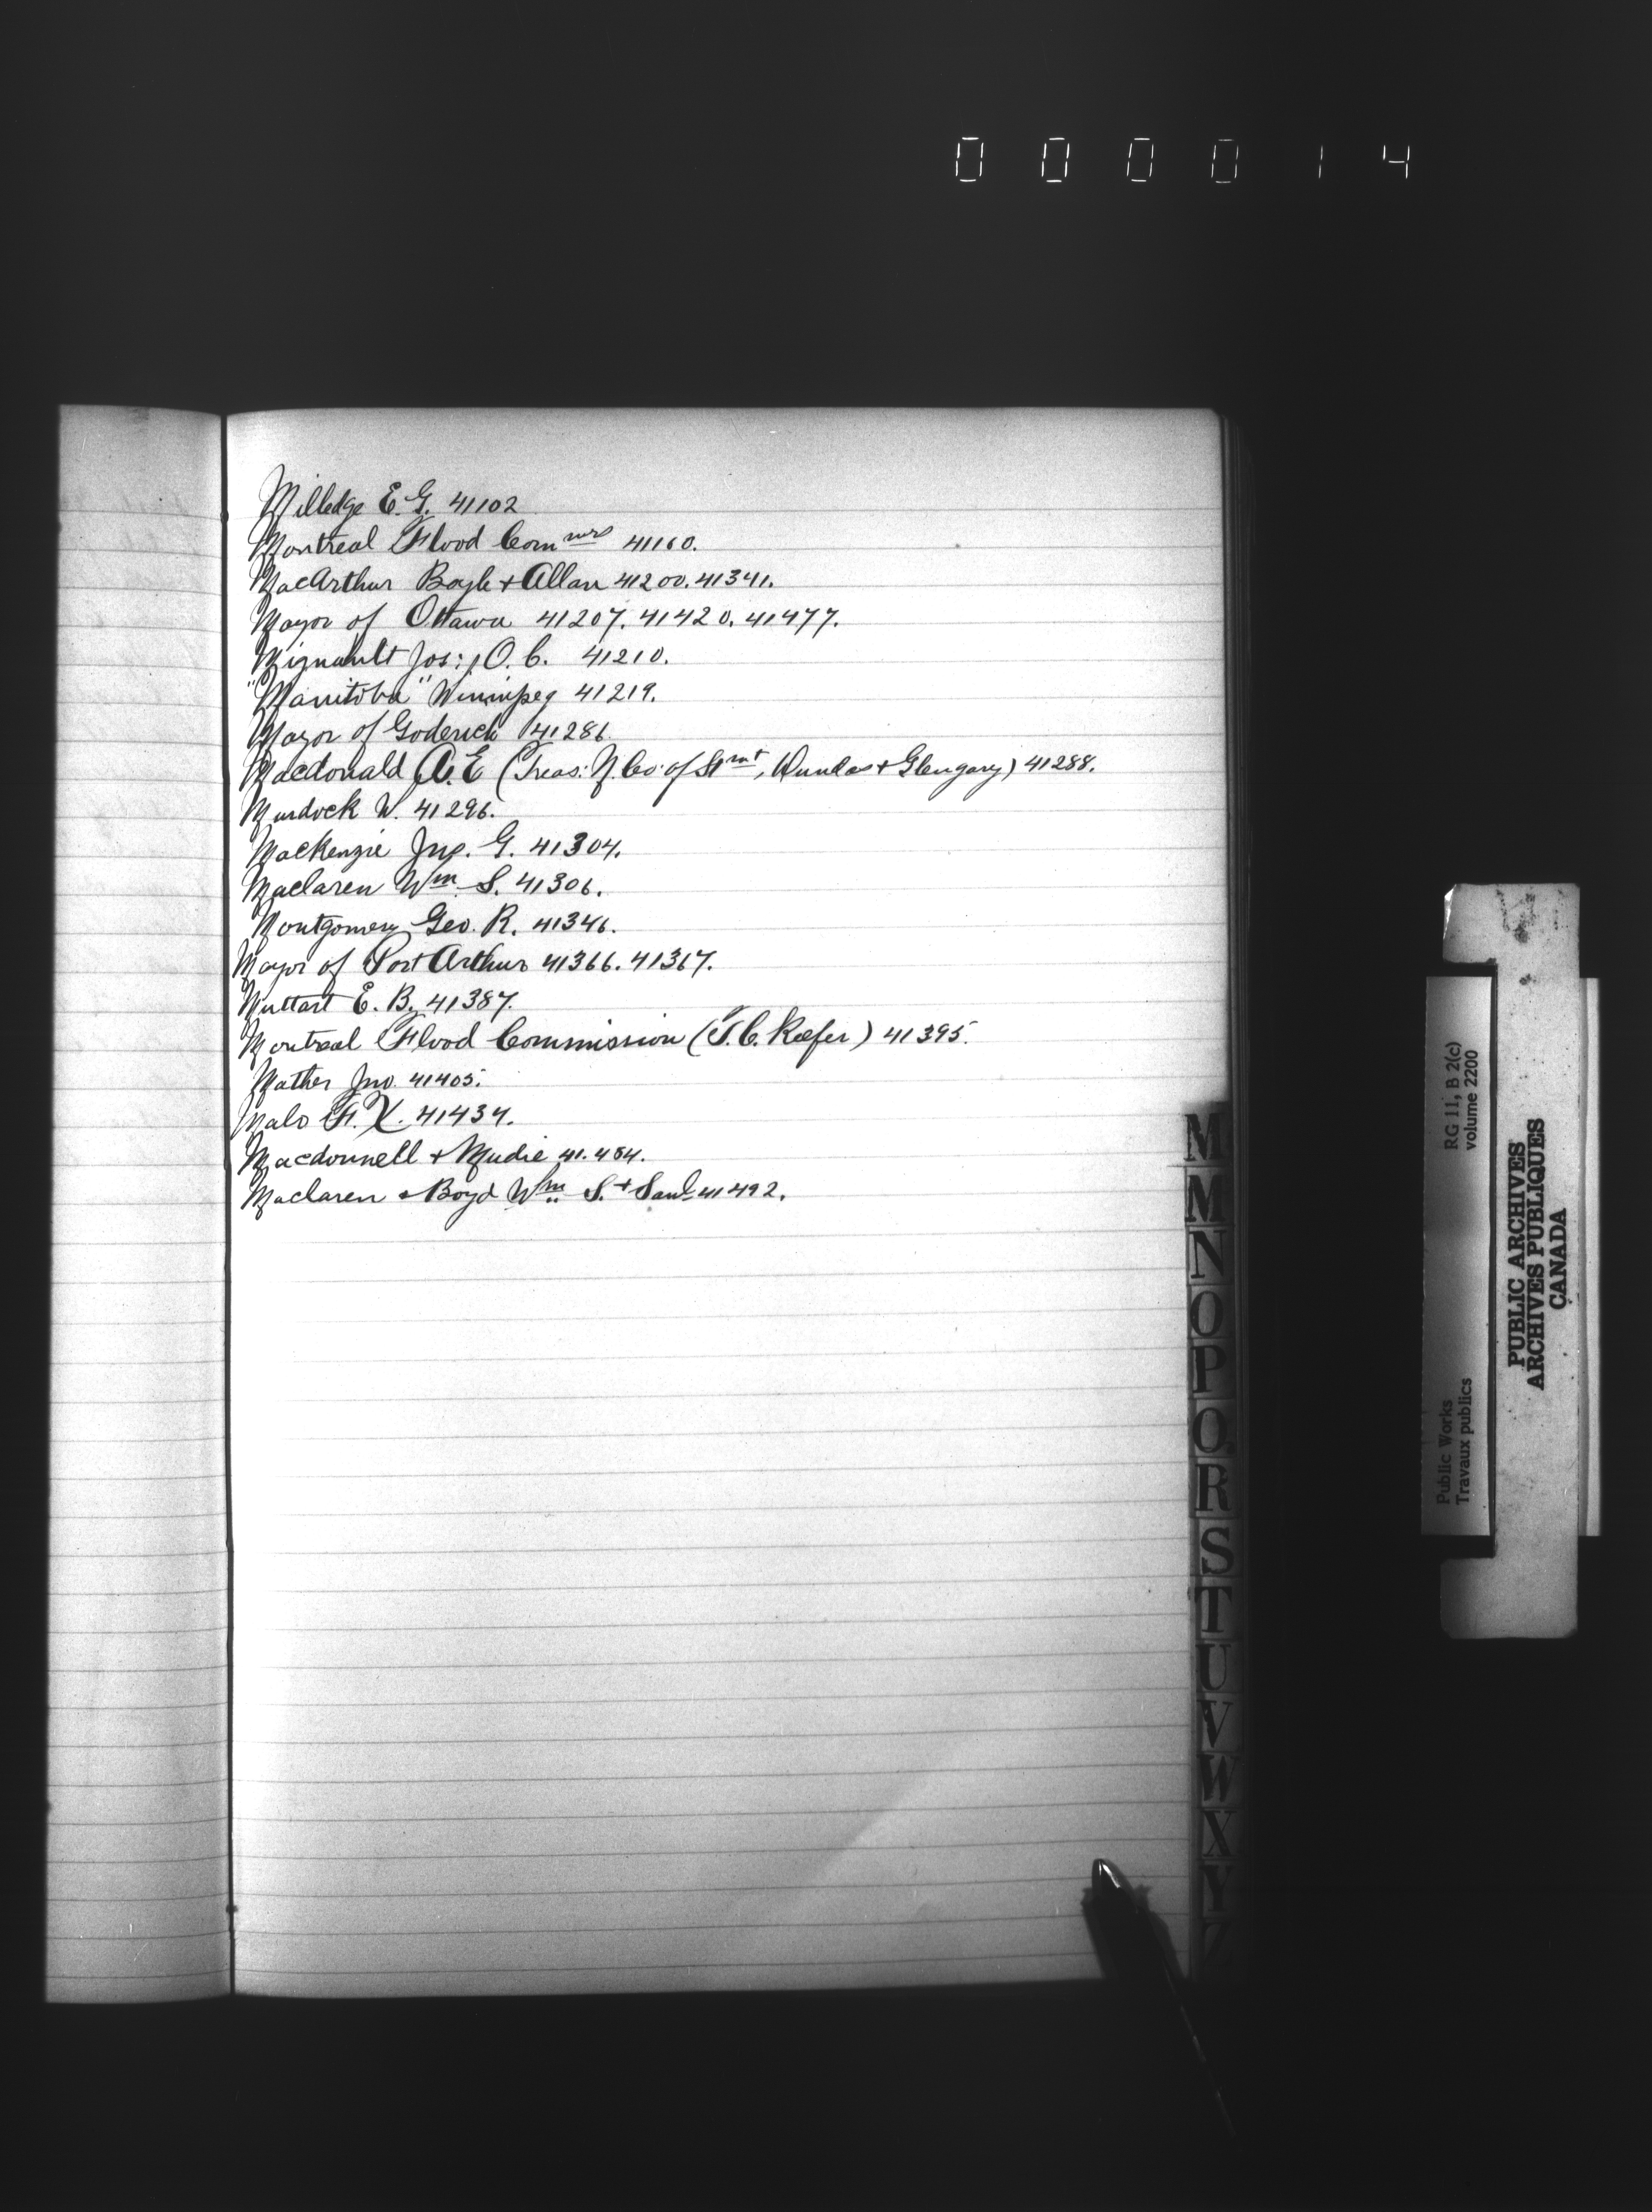 000014
Milledge E. G. 41102
Montreal Flood Commrs 41160.
MacArthur Boyle + Allan 41200. 41341.
Mayor of Ottawa 41207. 41420. 41477.
Mignault Jos: O. C. 41210.
"Manitoba" Winnipeg 41219.
Mayor of Goderich 41286
Macdonald A. E (Treas: Co: of Stmt, Dundas + Glengary) 41288.
Murdock W. 41296.
MacKenzie Jno. G. 41304.
Maclaren Wm S. 41306.
Montgomery Geo. R. 41346.
Mayor of Port Arthur 41366. 41367.
Muttart E. B. 41387.
Montreal Flood Commission (T. C. Keefer) 41395.
Mather Jno. 41405.
Malo F. X. 41434.
Macdonnell + Mudie 41.484.
Maclaren & Boyd Wm S. + Saml 41492.
M
M
N
O
P
Q
R
S
T
U
V
W
X
Y
Z
Public Works
Travaux publics
RG 11, B 2(c)
volume 2200
PUBLIC ARCHIVES
ARCHIVES PUBLIQUES
CANADA